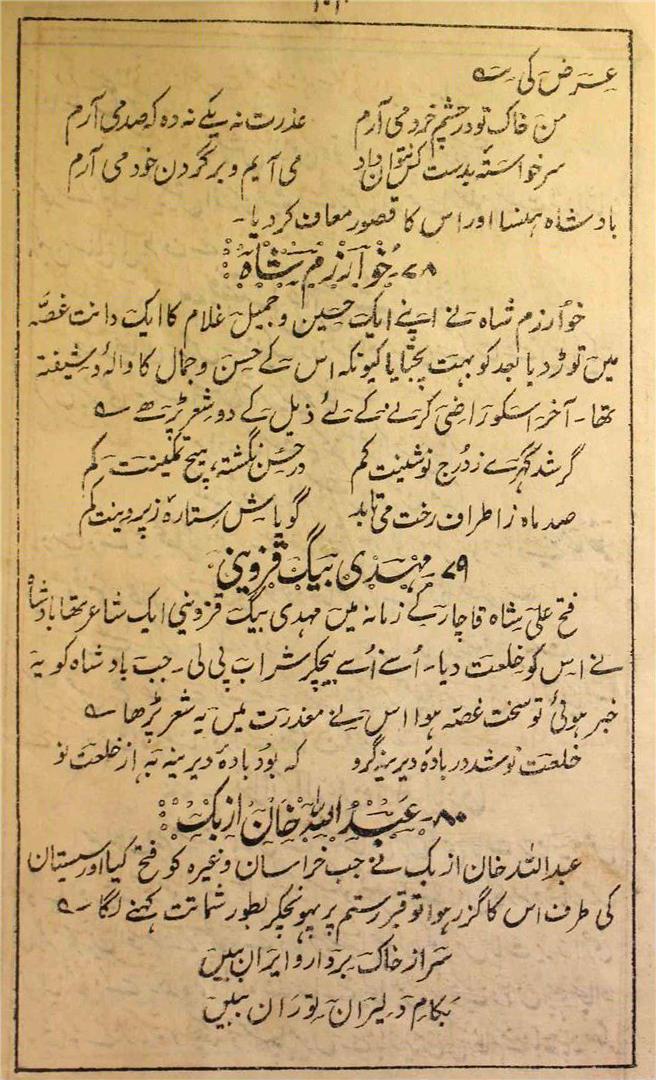 عرض کی ؎
من خاک تو در چشم خرد می آرم    عذرت نہ یکے نہ دہ کہ صد می آرم
سر خواستۂ بدست کس نتواں داد    می آیم و بر گردن خود می آرم
بادشاہ ہنسا اور اس کا قصور معاف کر دیا۔
۷۸۔ خوارزم شاہ
خوارزم شاہ نے اپنے ایک حسین و جمیل غلام کا ایک دانت غصّہ
میں توڑ دیا بعد کو بہت پچتایا کیونکہ اس کے حسن و جمال کا والہ و شیفتہ
تھا۔ آخر اسکو راضی کرنے کے لئے ذیل کے دو شعر پڑھے ؎
گر شد گہرے ز درج نوشینت کم    در حسن نگشتہ ہیچ تمکینت کم
صد ماہ ز اطراف رخت می تابد    گو باش ستارۂ ز پروینت کم
۷۹۔ مہدی بیگ قزوینی
فتح علی شاہ قاچار کے زمانہ میں مہدی بیگ قزوینی ایک شاعر تھا بادشاہ
نے اس کو خلعت دیا۔ اُسنے اُسے بیچکر شراب پی لی۔ جب بادشاہ کو یہ
خبر ہوئی تو سخت غصّہ ہوا اس نے معذرت میں یہ شعر پڑھا ؎
خلعت نو شد در بادۂ دیرینہ گرو    کہ بود بادۂ دیرینہ بہ از خلعت نو
۸۰۔ عبد اللہ خان ازبک
عبد اللہ خان ازبک نے جب خراسان وغیرہ کو فتح کیا اور سیستان
کی طرف اس کا گزر ہوا تو قبر رستم پر پہونچکر بطور شماتت کہنے لگا ؎
سر از خاک بردار و ایران ببیں
بکام دلیران توران ببیں